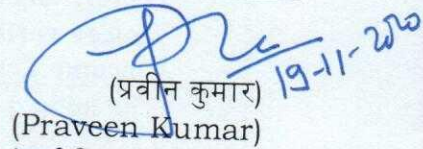 19-11-2020
(प्रवीन कुमार)
(Praveen Kumar)